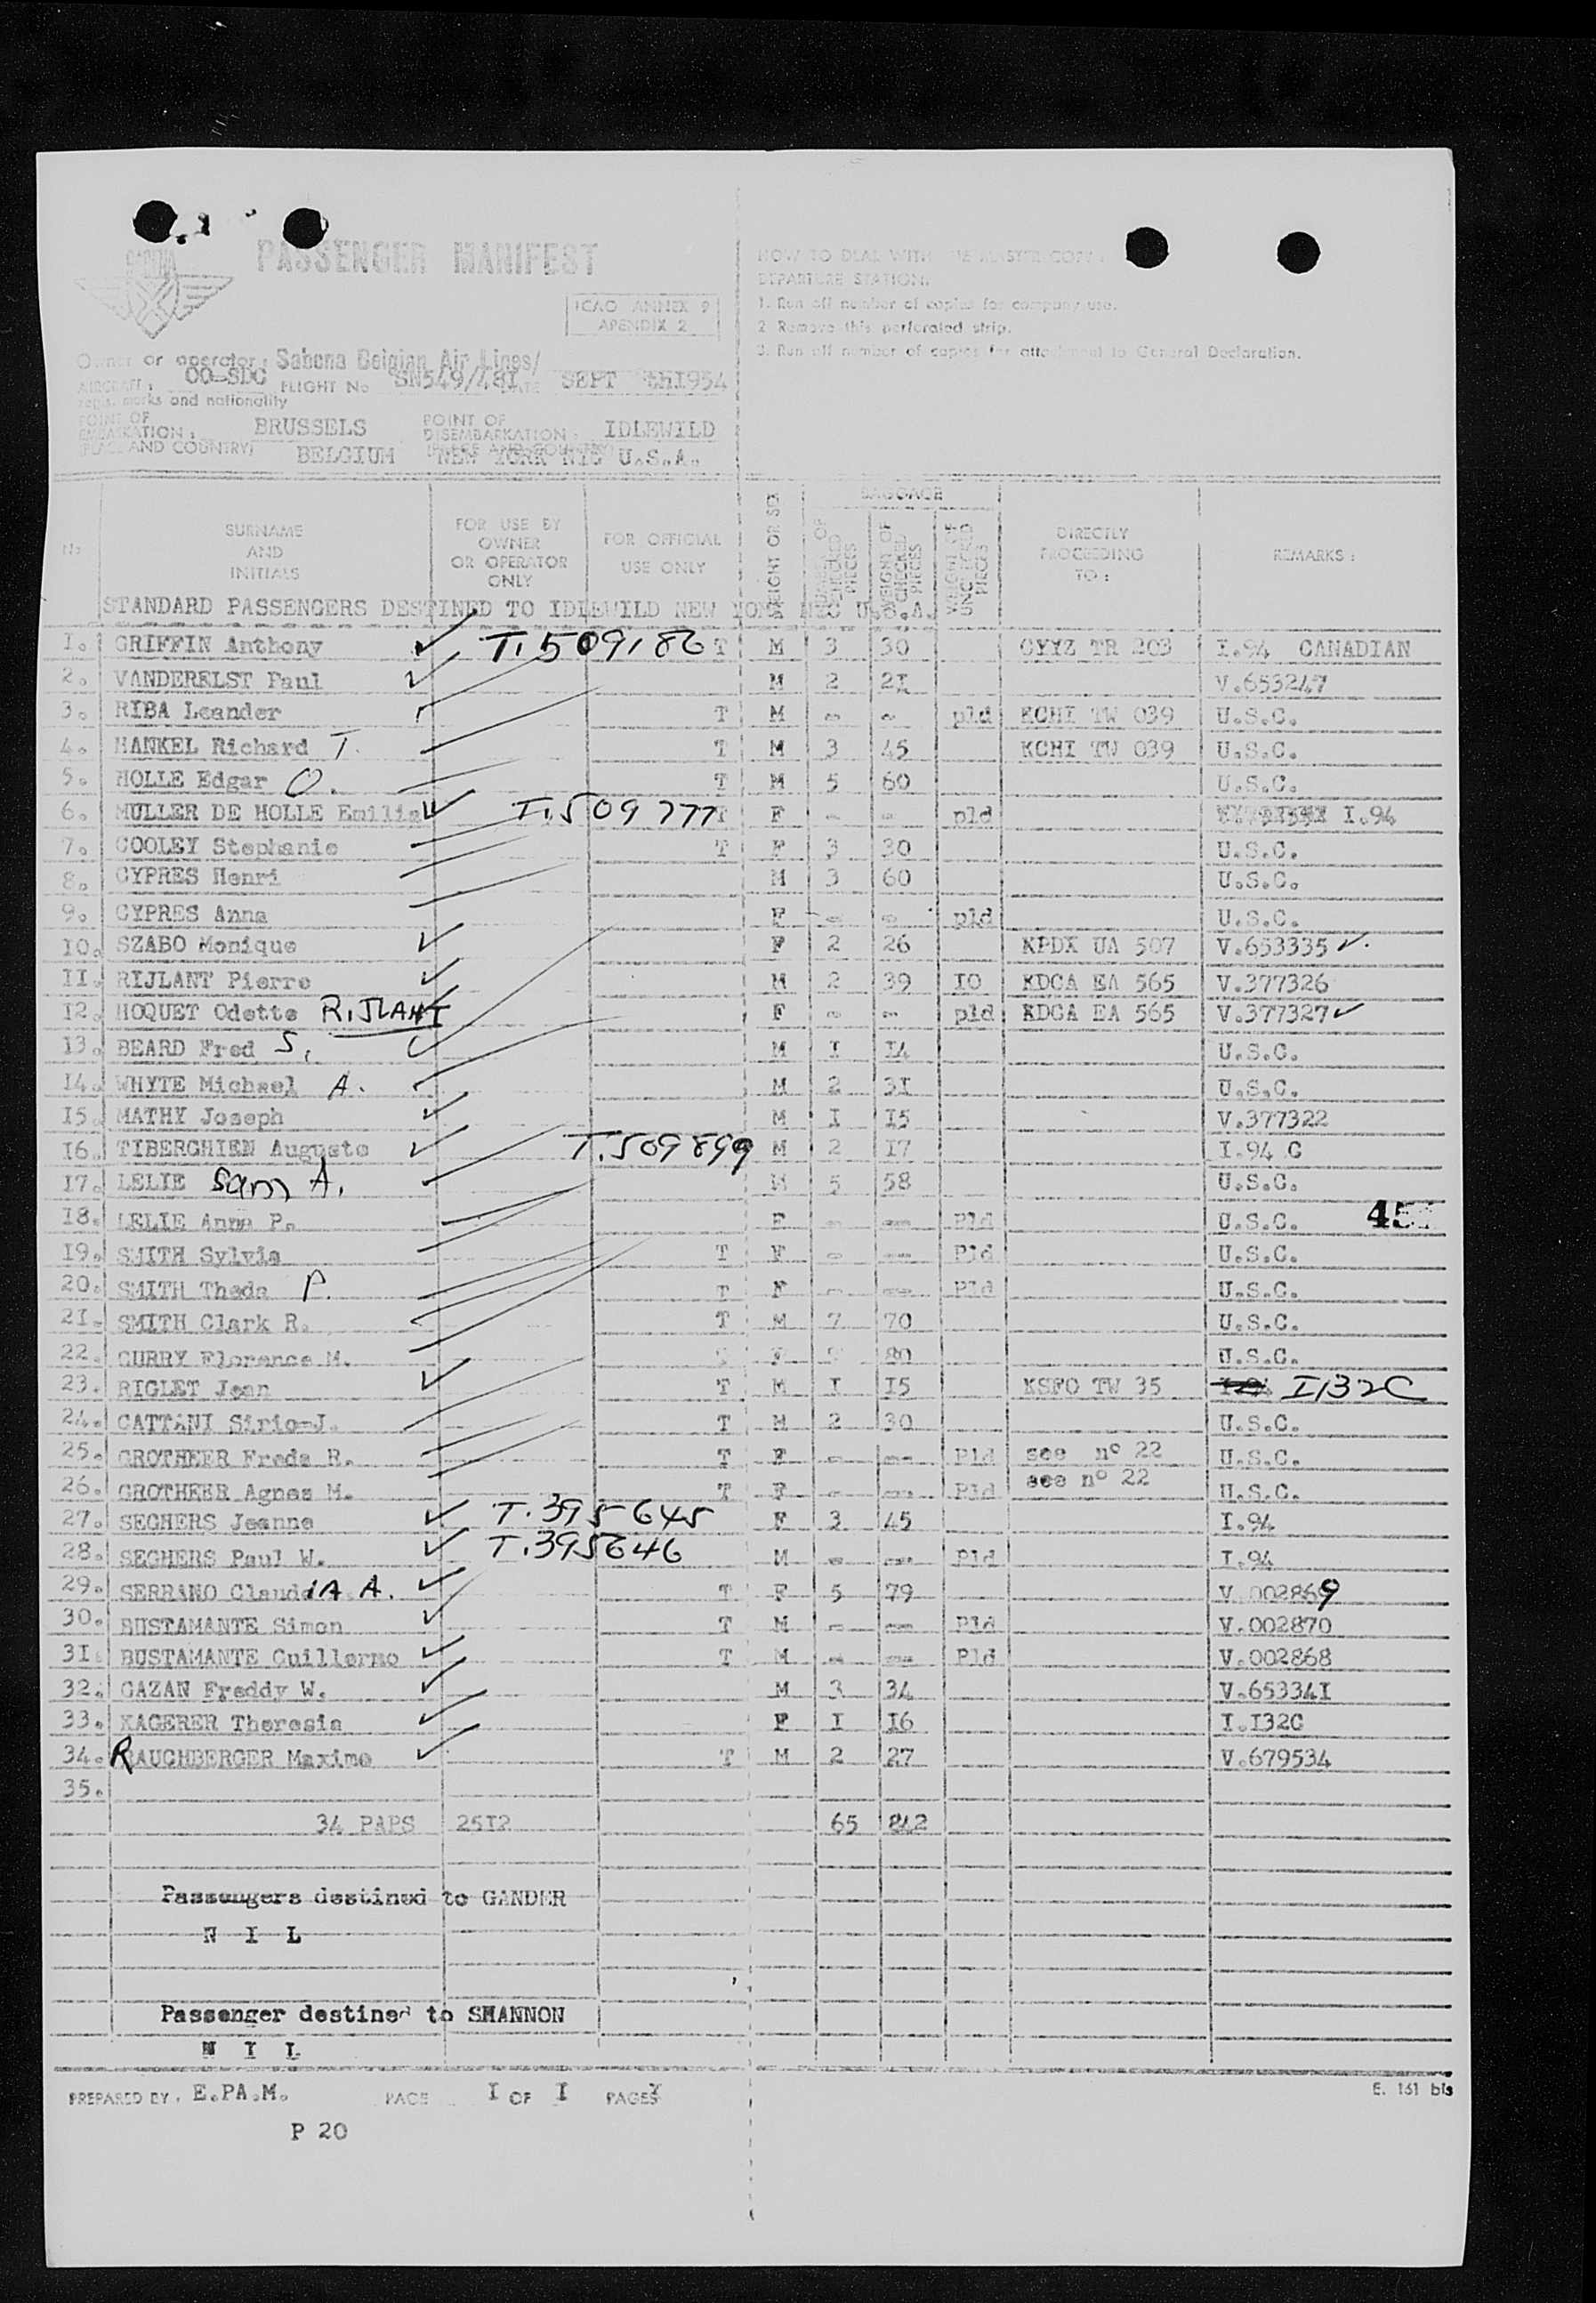 PASSENGER MANIFEST
SABENA
ICAO ANNEX 9
APENDIX 2
Owner or operator: Sabena Belgian Air Lines/
AIRCRAFT: OO-SDC FLIGHT No SN549/48I DATE SEPT thI954
regis. marks and nationality
POINT OF EMBARKATION: BRUSSELS POINT OF DISEMBARKATION: IDLEWILD
(PLACE AND COUNTRY) BELGIUM (PLACE AND COUNTRY) NEW YORK NYC U.S.A.
HOW TO DEAL WITH THE MASTER COPY:
DEPARTURE STATION:
1. Run off number of copies for company use.
2. Remove this perforated strip.
3. Run off number of copies for attachment to General Declaration.
No SURNAME AND INITIALS FOR USE BY OWNER OR OPERATOR ONLY FOR OFFICIAL USE ONLY WEIGHT OR SEX BAGGAGE NUMBER OF CHECKED PIECES WEIGHT OF CHECKED PIECES WEIGHT OF UNCHECKED PIECES DIRECTLY PROCEEDING TO: REMARKS:
STANDARD PASSENGERS DESTINED TO IDLEWILD NEW YORK NYC U.S.A.
I. GRIFFIN Anthony ✓ T.509186 T M 3 30 CYYZ TR 203 I.94 CANADIAN
2. VANDERELST Paul ✓ M 2 2I V.653247
3. RIBA Leander T M - - pld KCHI TW 039 U.S.C.
4. HANKEL Richard T. T M 3 45 KCHI TW 039 U.S.C.
5. HOLLE Edgar O. T M 5 60 U.S.C.
6. MULLER DE HOLLE Emilia ✓ T.509777 T F - - pld I.94
7. COOLEY Stephanie T F 3 30 U.S.C.
8. CYPRES Henri M 3 60 U.S.C.
9. CYPRES Anna F - - pld U.S.C.
IO. SZABO Monique ✓ F 2 26 KPDX UA 507 V.653335 ✓.
II. RIJLANT Pierre ✓ M 2 39 IO KDCA EA 565 V.377326
I2. HOQUET Odette RIJLANT ✓ F - - pld KDCA EA 565 V.377327 ✓
I3. BEARD Fred S. M I I4 U.S.C.
I4. WHYTE Michael A. M 2 3I U.S.C.
I5. MATHY Joseph ✓ M I I5 V.377322
I6. TIBERGHIEN Auguste ✓ T.509899 M 2 I7 I.94 C
I7. LELIE Sam A. M 5 58 U.S.C.
I8. LELIE Anna P. F - - Pld U.S.C. 45
I9. SMITH Sylvia T F - - Pld U.S.C.
20. SMITH Theda P. T F - - Pld U.S.C.
2I. SMITH Clark R. T M 7 70 U.S.C.
22. CURRY Florence M. F 80 U.S.C.
23. RIGLET Jean ✓ T M I I5 KSFO TW 35 I.94 I132C
24. CATTANI Sirio-J. T M 2 30 U.S.C.
25. GROTHEER Freda R. T F - - Pld see n° 22 U.S.C.
26. GROTHEER Agnes M. T F - - Pld see n° 22 U.S.C.
27. SEGHERS Jeanne ✓ T.395645 F 3 45 I.94
28. SEGHERS Paul W. ✓ T.395646 M - - Pld I.94
29. SERRANO ClaudiA A. ✓ T F 5 79 V.002869
30. BUSTAMANTE Simon ✓ T M - - Pld V.002870
3I. BUSTAMANTE Guillermo ✓ T M - - Pld V.002868
32. CAZAN Freddy W. ✓ M 3 34 V.65334I
33. KAGERER Theresia ✓ F I I6 I.I32C
34. RAUCHBERGER Maxime ✓ T M 2 27 V.679534
35.
34 PAPS 25I2 65 842
Passengers destined to GANDER
N I L
Passenger destined to SHANNON
N I L
PREPARED BY. E.PA.M. PAGE I OF I PAGES E. 161 bis
P 20